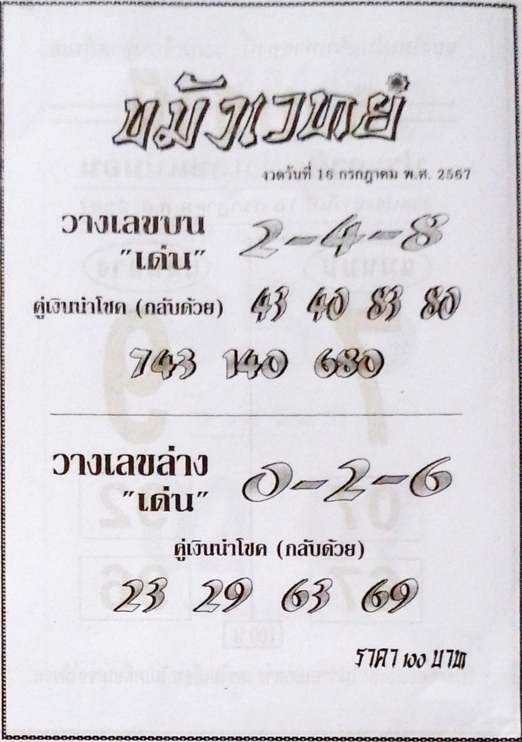 งวดวันที่ 16 กรกฎาคม พ.ศ. 2567
วางเลขบน 2-4-8
"เด่น"
คู่เงินนำโชค (กลับด้วย) 43 40 83 80
743 140 680
วางเลขล่าง 0-2-6
"เด่น"
คู่เงินนำโชค (กลับด้วย)
23 29 63 69
ราคา 100 บาท